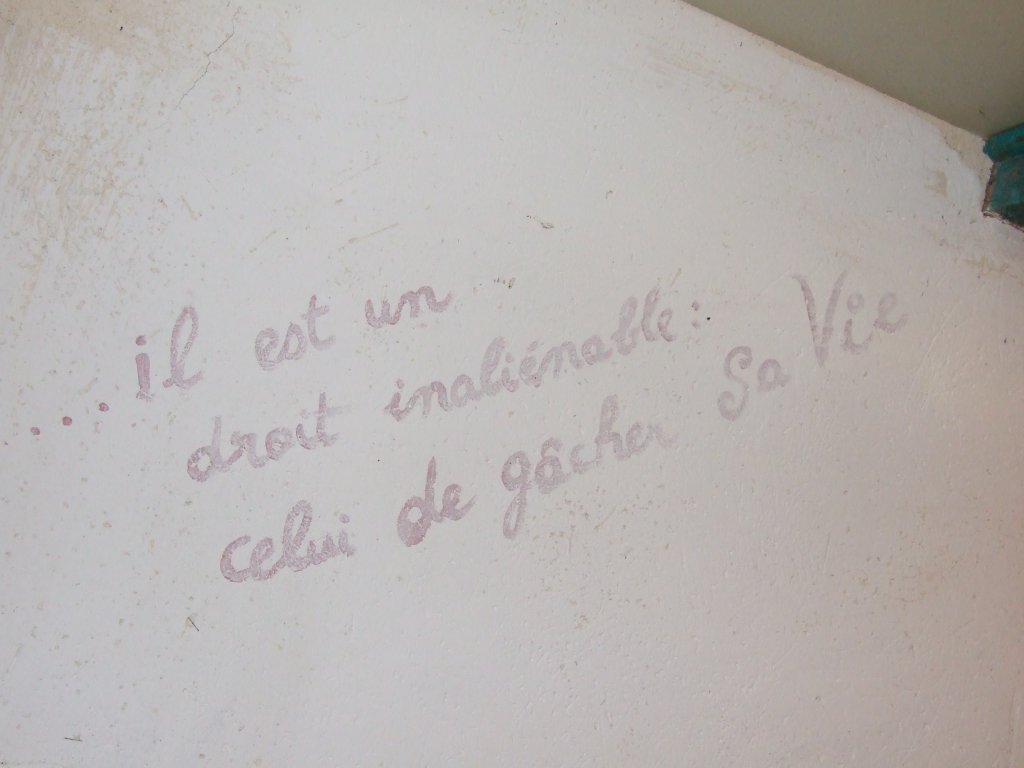 ...il est un
droit inaliénable:
celui de gâcher sa Vie